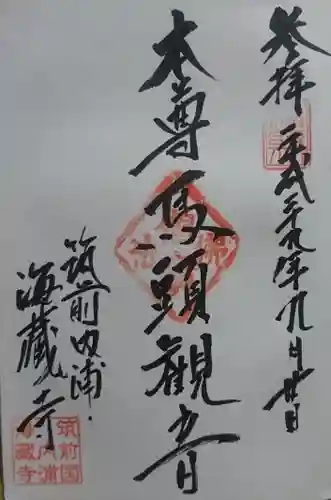 参拝 平成二十九年九月廿日
本尊馬頭観音
筑前内浦
海蔵寺
筑前国
内浦
海蔵寺